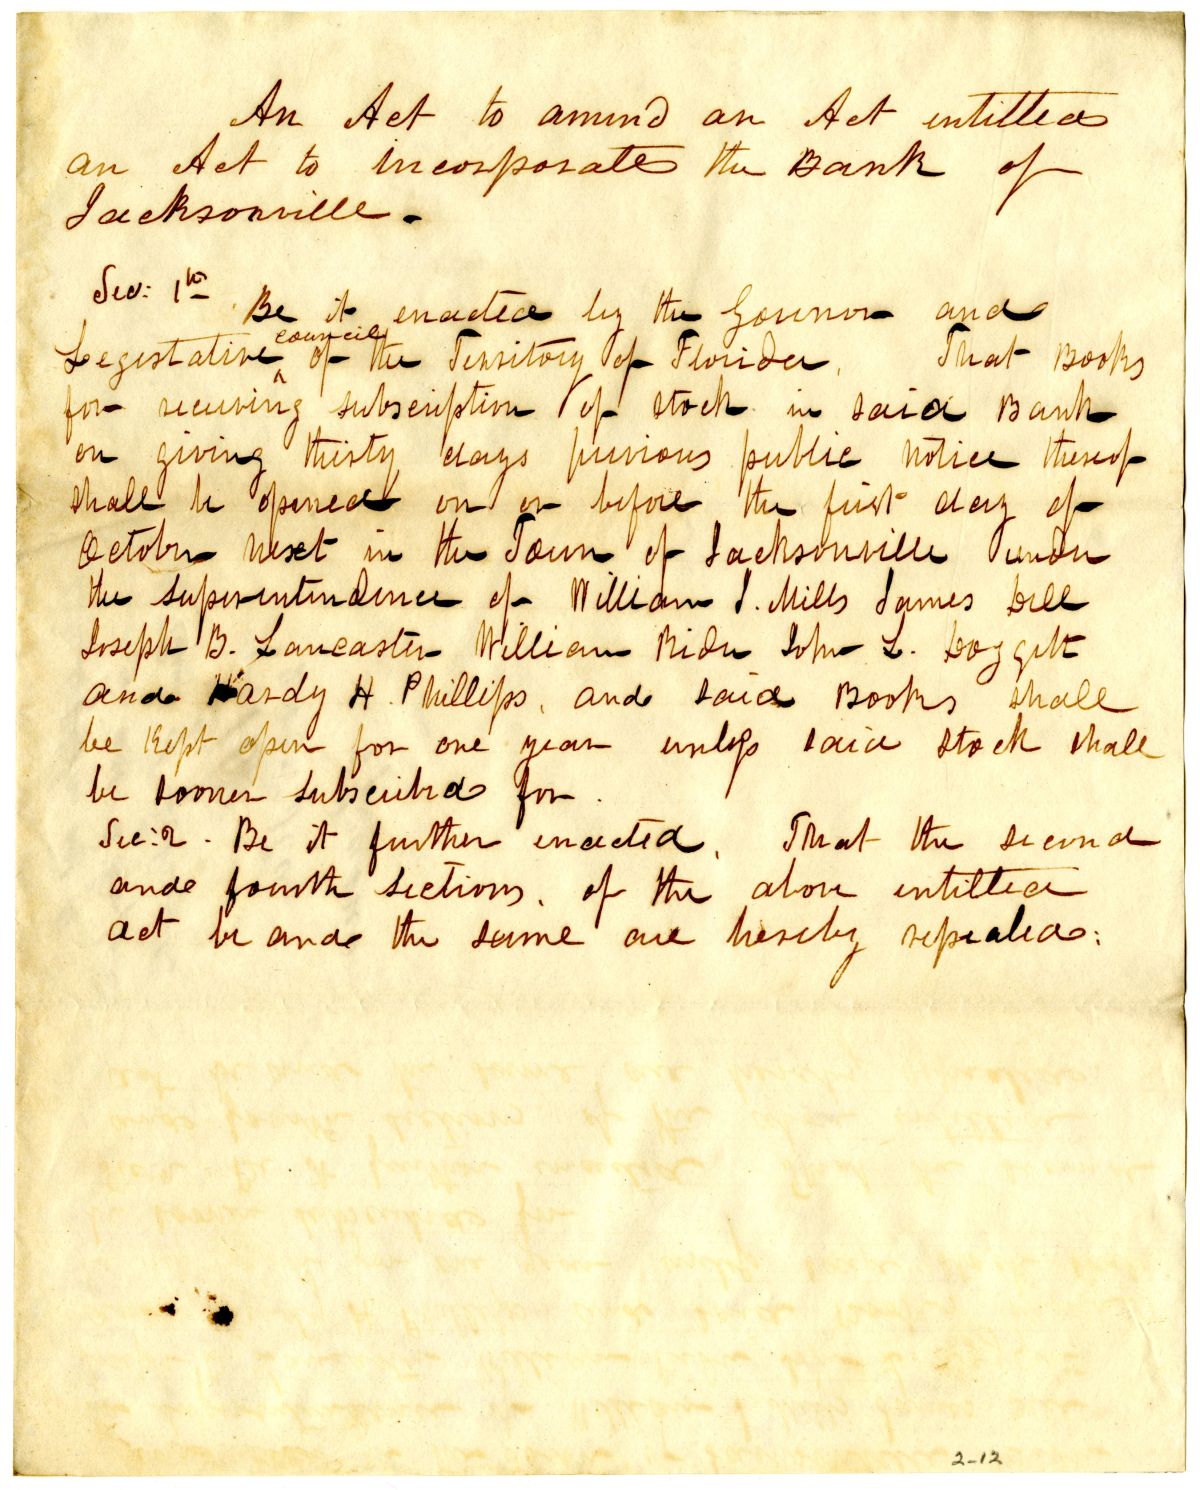 An Act to amend an Act entitled
an Act to incorporate the Bank of
Jacksonville.
Sec: 1st Be it enacted by the Governor and
Legislative council of the Territory of Florida, That Books
for receiving subscription of stock in said Bank
on giving thirty days previous public notice thereof
shall be opened on or before the first day of
October next in the Town of Jacksonville under
the superintendence of William J. Mills James Dell
Joseph B. Lancaster William Rider John L. Doggett
and Hardy H. Phillips, and said Books shall
be Kept open for one year unless said stock shall
be sooner subscribed for.
Sec: 2. Be it further enacted, That the second
and fourth sections, of the above entitled
act be and the same are hereby repealed:
2-12